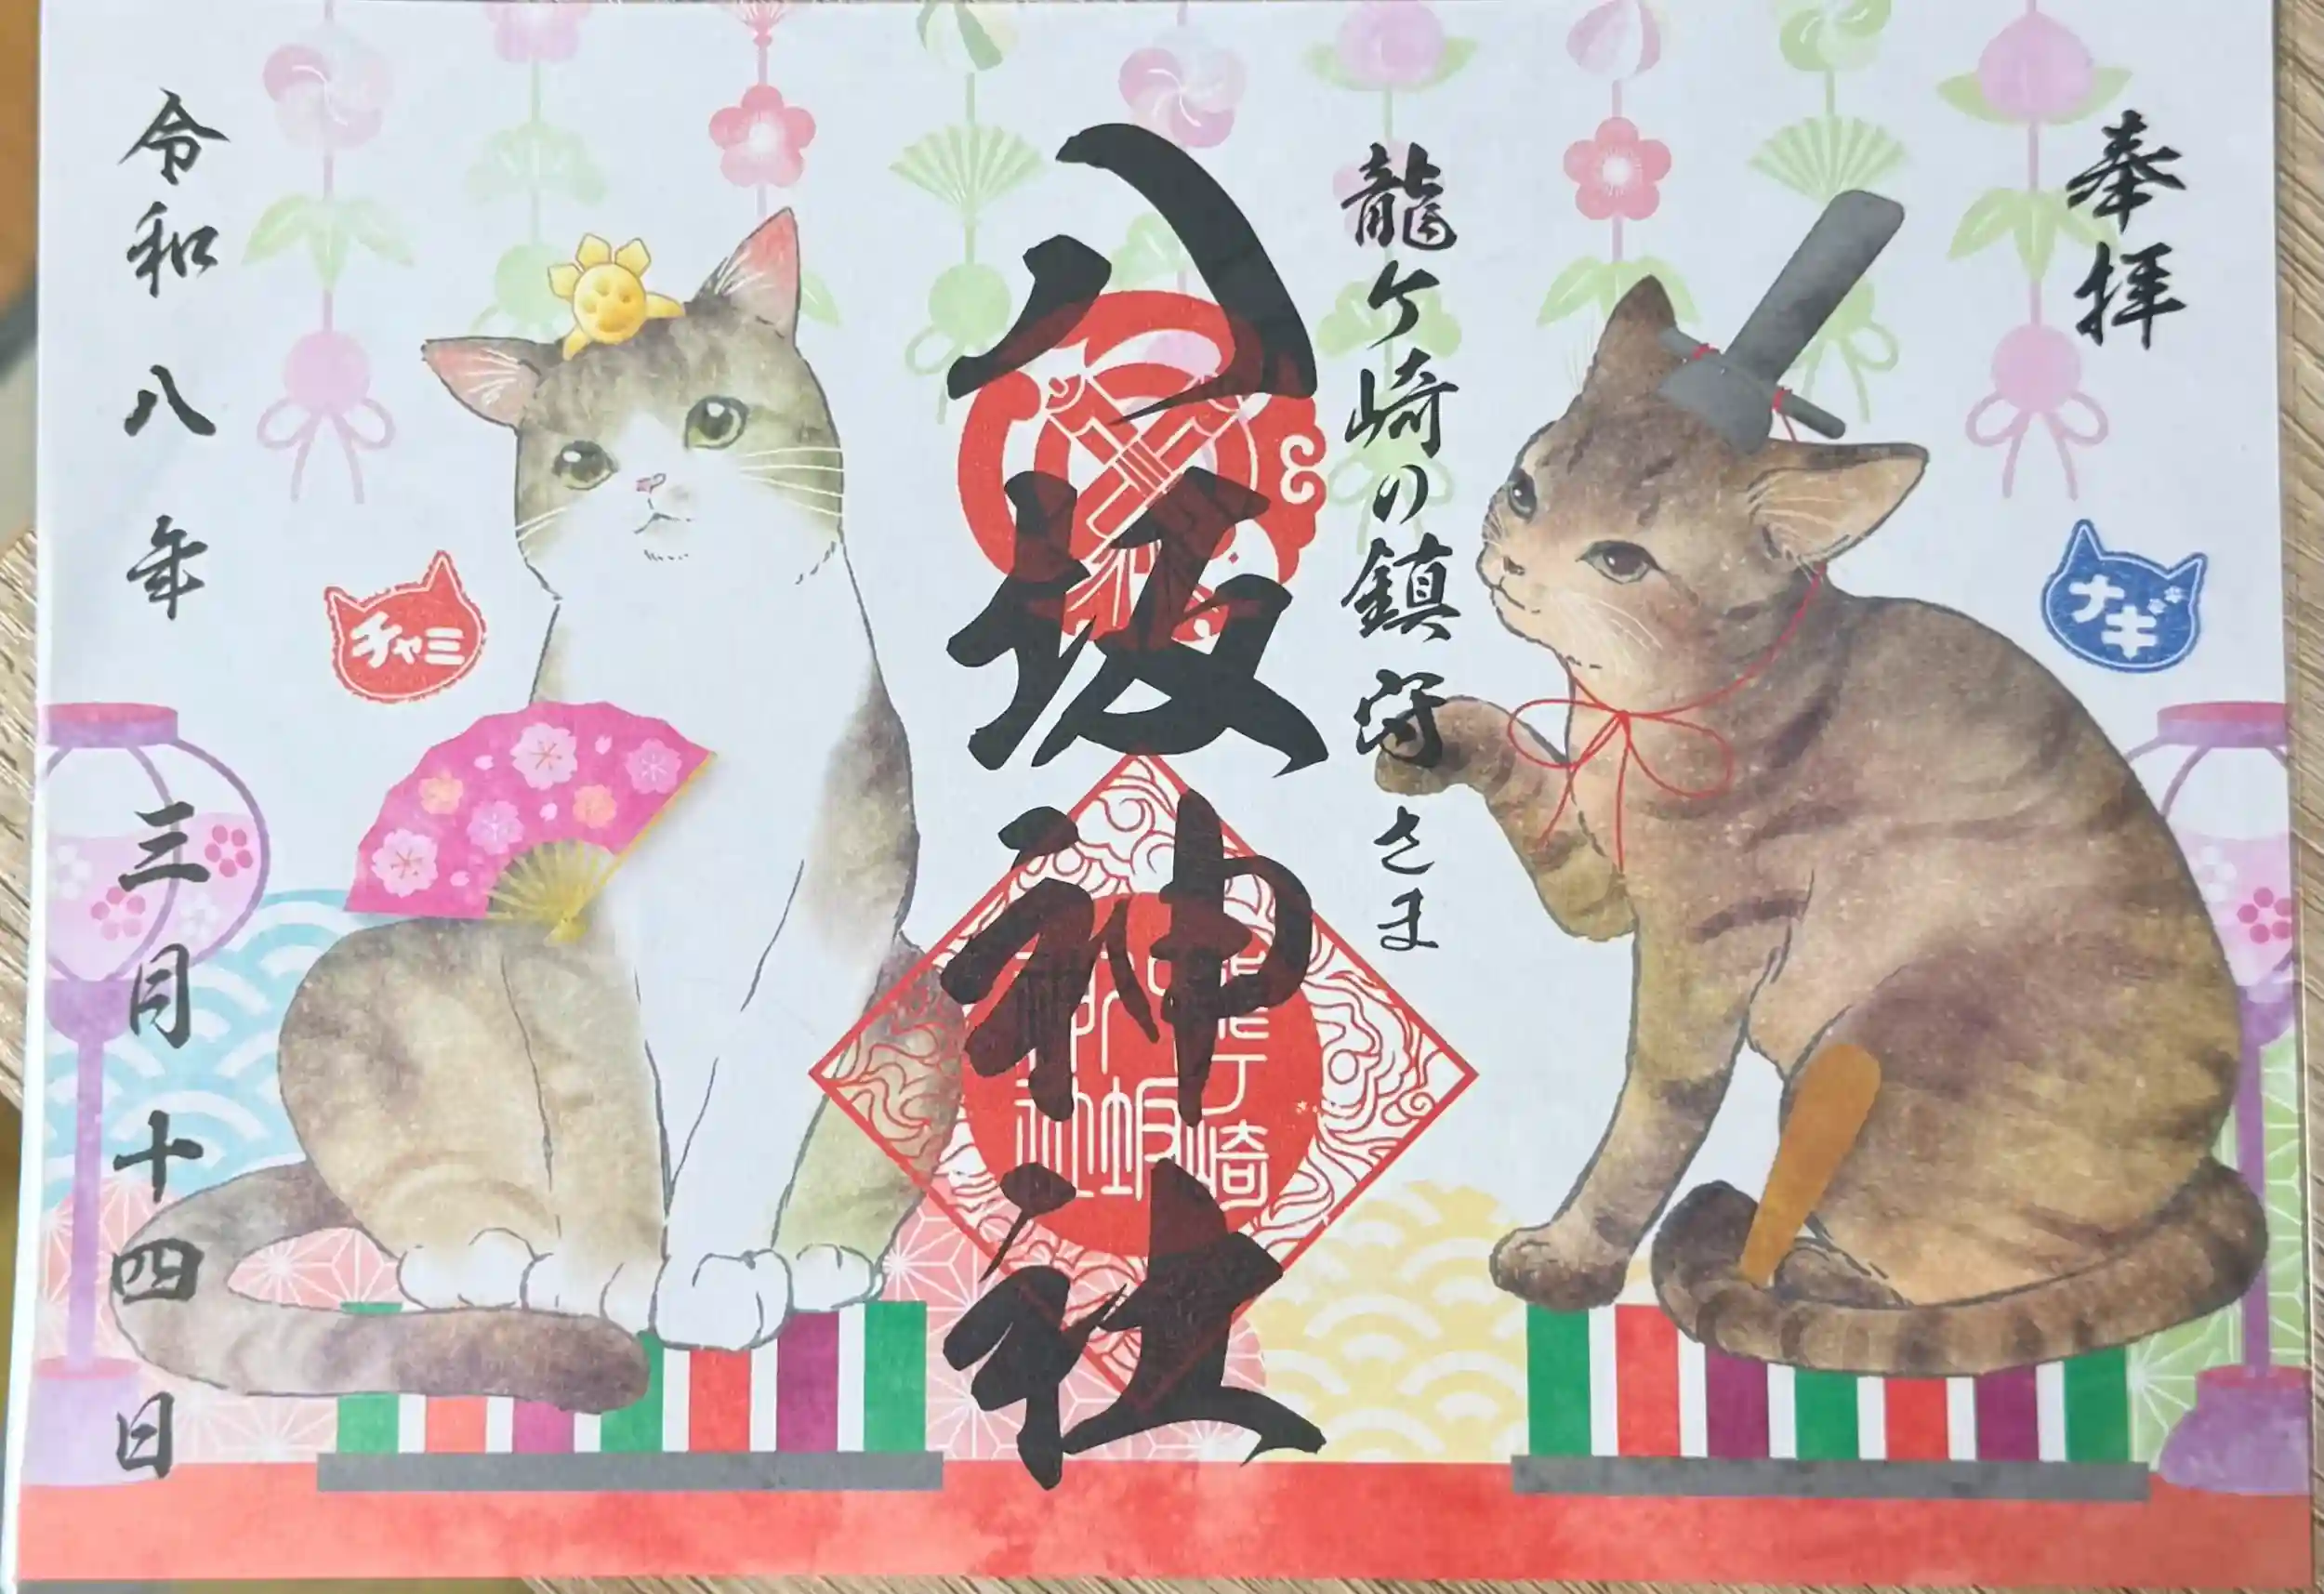 奉拝
ナギ
龍ケ崎の鎮守さま
八坂神社
龍ケ崎
八坂
神社
チャミ
令和八年三月十四日